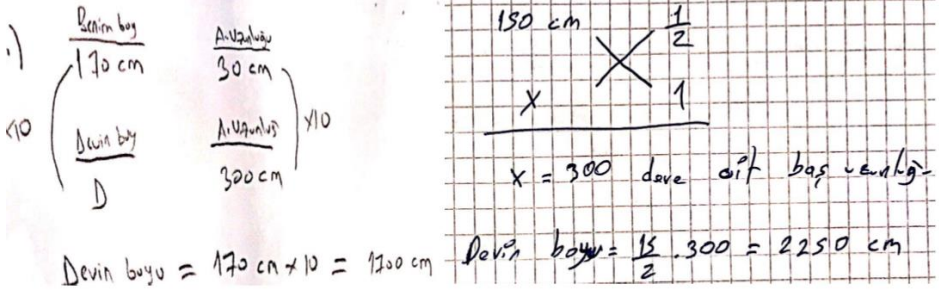 .) Benim boy A.Uzunluğu
170 cm 30 cm
x10
Devin boy A.Uzunluğ
D 300 cm
x10
Devin boyu = 170 cm x 10 = 1700 cm
150 cm 1/2
x 1
x = 300 deve ait baş
Devin boyu = 15/2 . 300 = 2250 cm